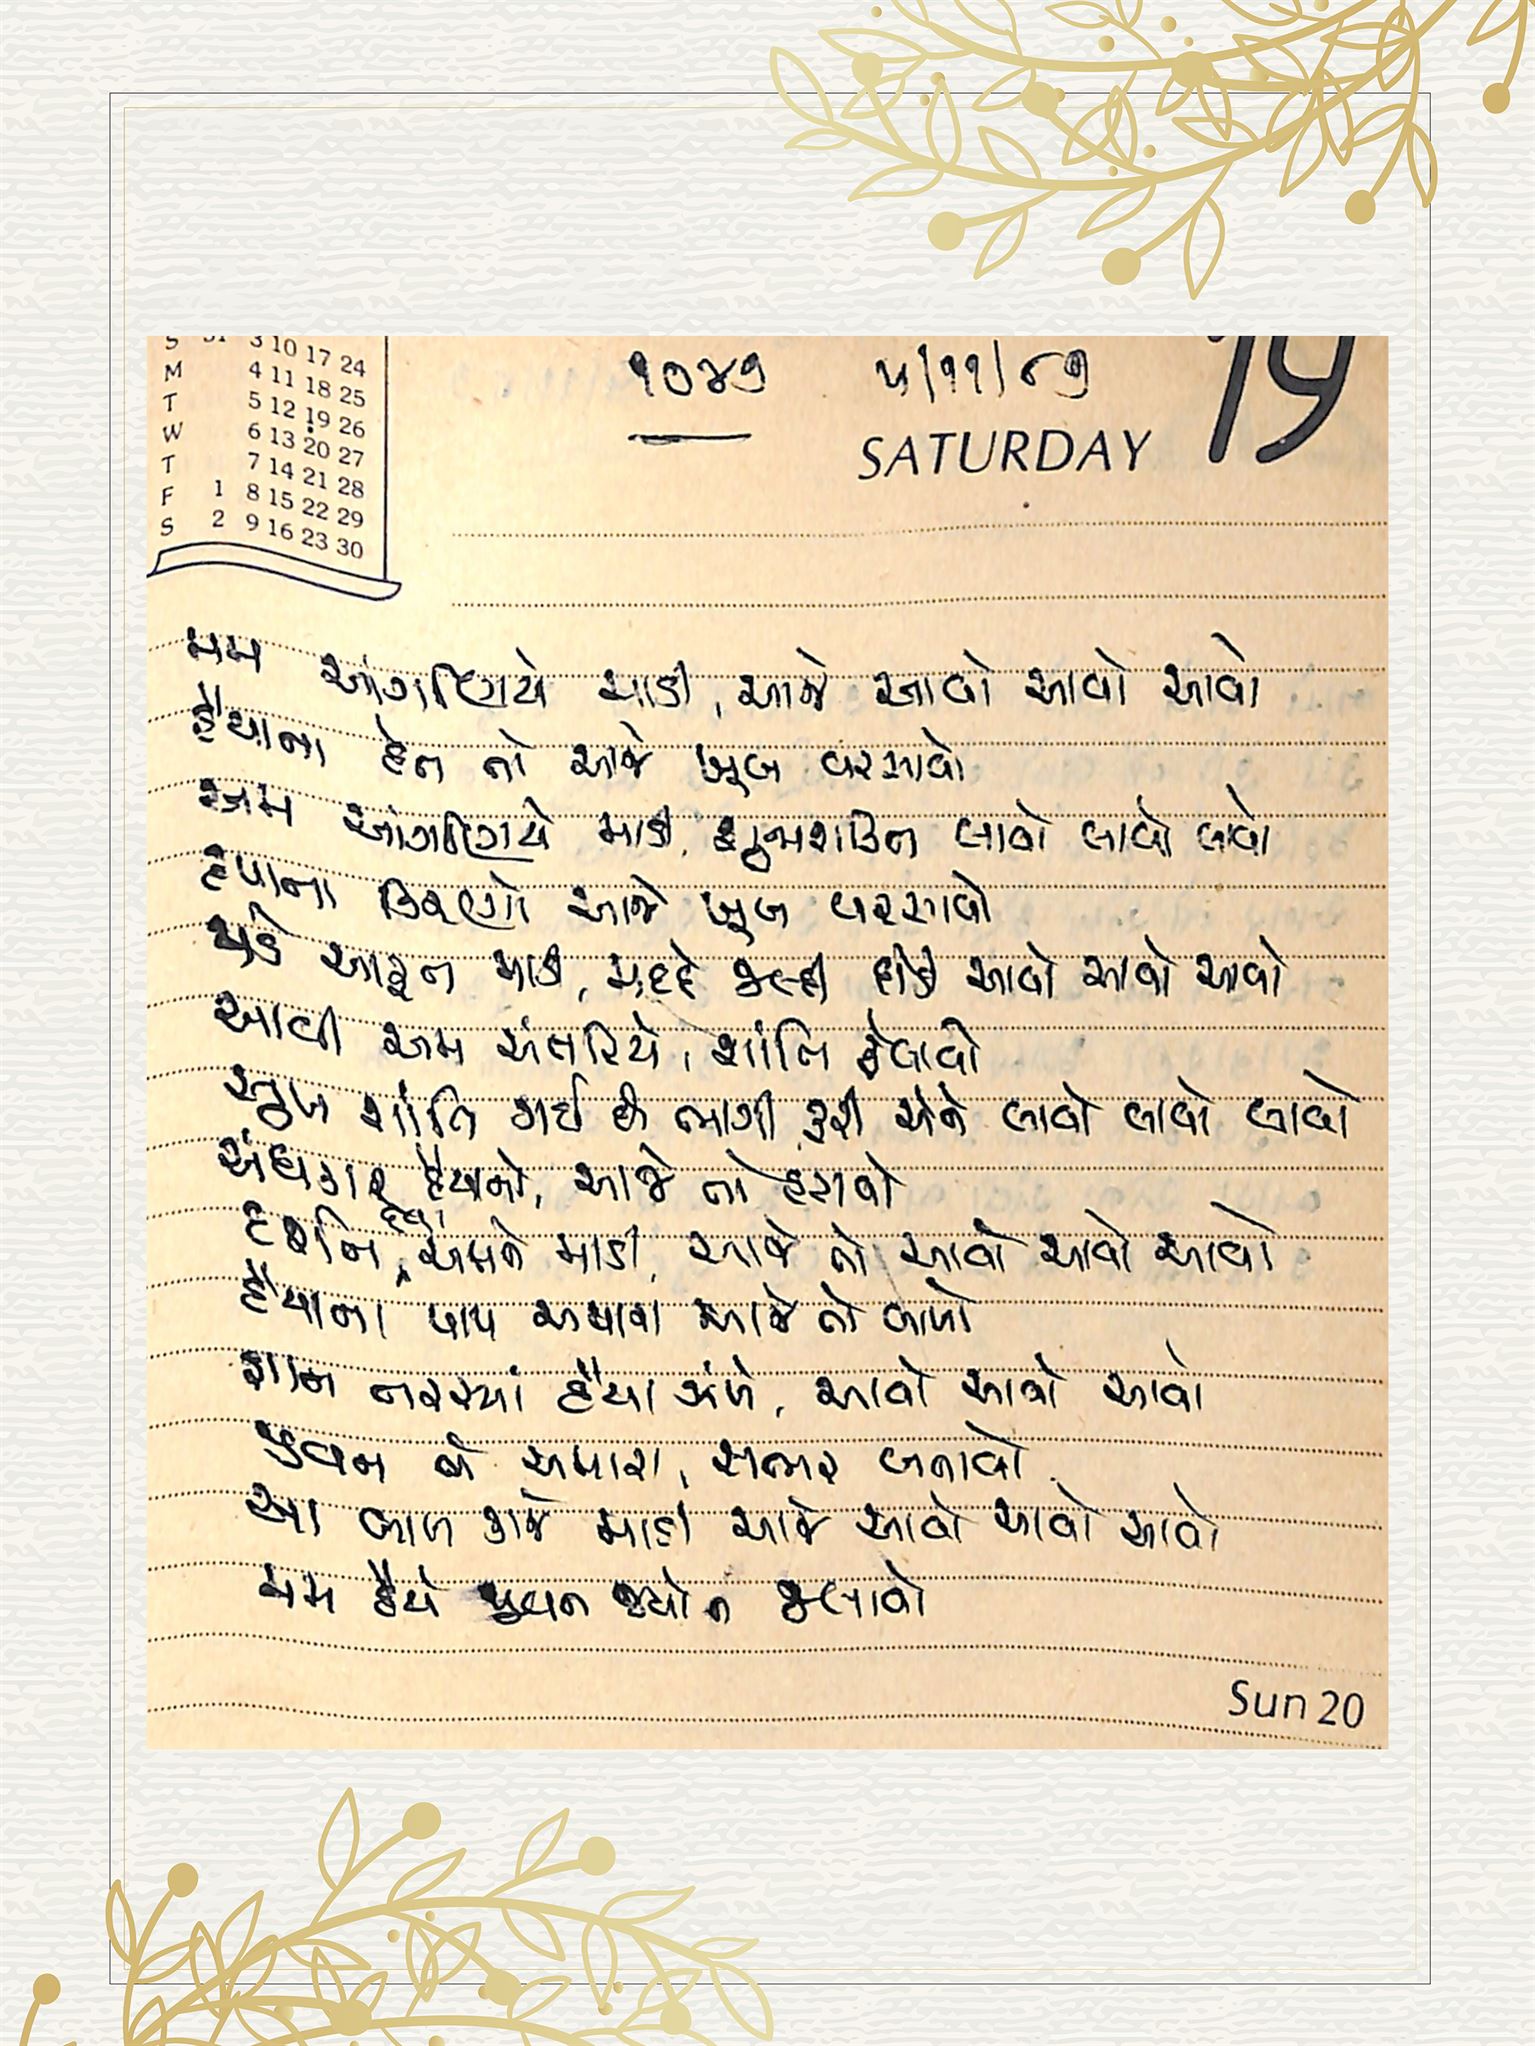 S 31 3 10 17 24
M 4 11 18 25
T 5 12 19 26
W 6 13 20 27
T 7 14 21 28
F 1 8 15 22 29
S 2 9 16 23 30
૧૦૪૭ ૫/૧૧/૮૭
19
SATURDAY
મમ આંગણિયે માડી, આજે આવો આવો આવો
હૈયાના હેત તો આજે ખૂબ વરસાવો
અમ આંગણિયે માડી, શુભશકુન લાવો લાવો લાવો
દયાના કિરણો આજે ખૂબ વરસાવો
પડે આફત માડી, મદદે જલ્દી દોડી આવો આવો આવો
આવી અમ અંતરિયે, શાંતિ ફેલાવો
સુખ શાંતિ ગઈ છે ભાગી, ફરી એને લાવો લાવો લાવો
અંધકાર હૈયાનો, આજે તો હટાવો
દર્શન દેવા અમને માડી, આજે તો આવો આવો આવો
હૈયાના પાપ અમારા આજે તો બાળો
જ્ઞાન તરસ્યાં હૈયા અંગે, આવો આવો આવો
જીવન છે અમારા, સભર બનાવો
આ બાળ કાજે માડી આજે આવો આવો આવો
મમ હૈયે જીવન જ્યોત જલાવો
Sun 20